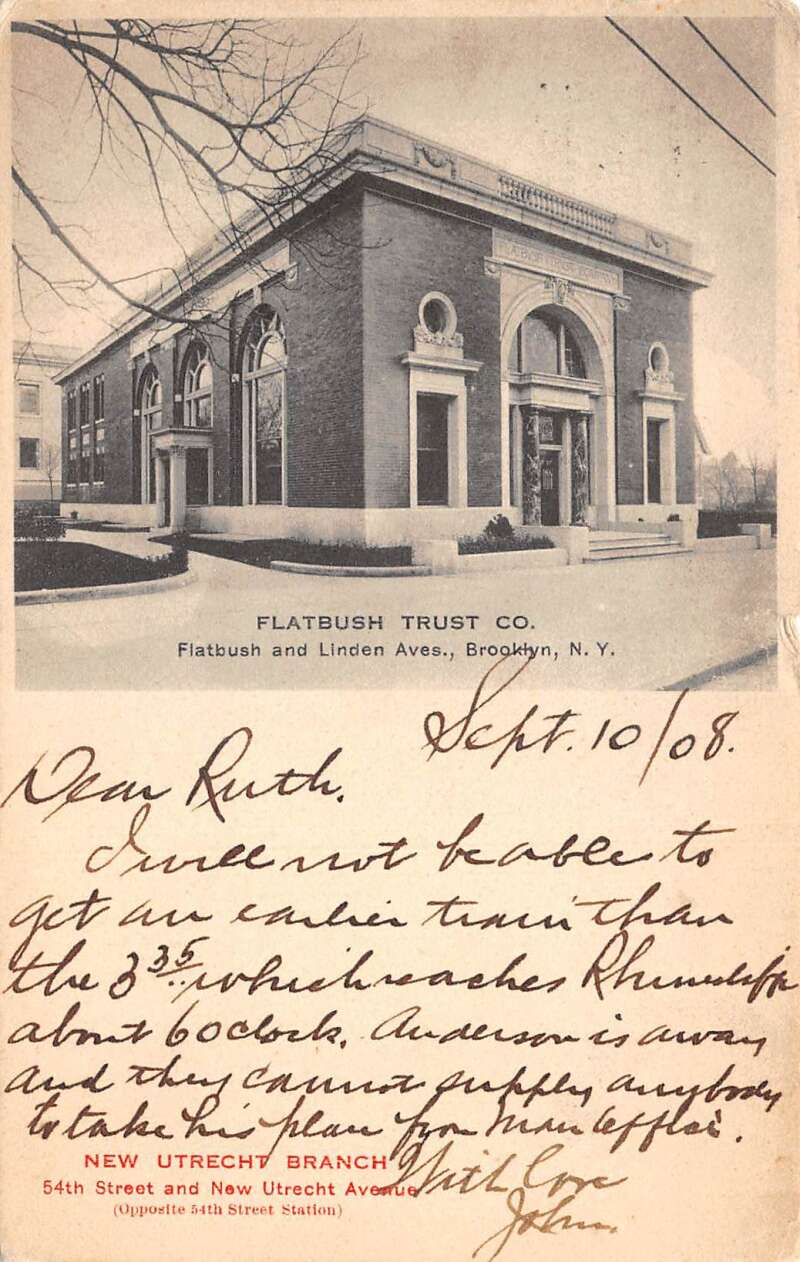 FLATBUSH TRUST CO.
Flatbush and Linden Aves., Brooklyn, N. Y.
Sept. 10/08.
Dear Ruth.
I will not be able to
get an earlier train than
the 3 35 which reaches Rhinecliffe
about 6 oclock. Anderson is away
and they cannot supply anybody
to take his plan from Main Office.
With Love
John.
NEW UTRECHT BRANCH
54th Street and New Utrecht Avenue
(Opposite 54th Street Station)